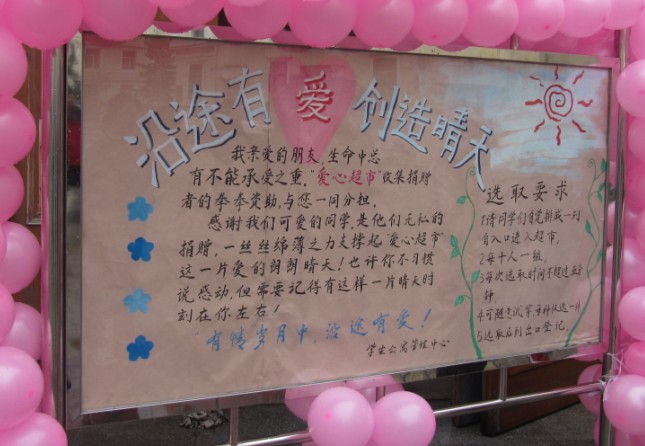 沿途有爱 创造晴天
我亲爱的朋友,生命中总
有不能承受之重,"爱心超市"收集捐赠
者的拳拳赞助,与您一同分担。
感谢我们可爱的同学,是他们无私的
捐赠,一丝丝绵薄之力支撑起"爱心超市"
这一片爱的朗朗晴天!也许你不习惯
说感动,但需要记得有这样一片晴天时
刻在你左右!
有情岁月中,沿途有爱!
学生公寓管理中心
选取要求
1.请同学们自觉排成一列
自入口进入超市。
2.每十人一组。
3.每次选取时间不超过五分
钟。
4.可随意试穿 每种仅选一件
5.选取后到出口登记。